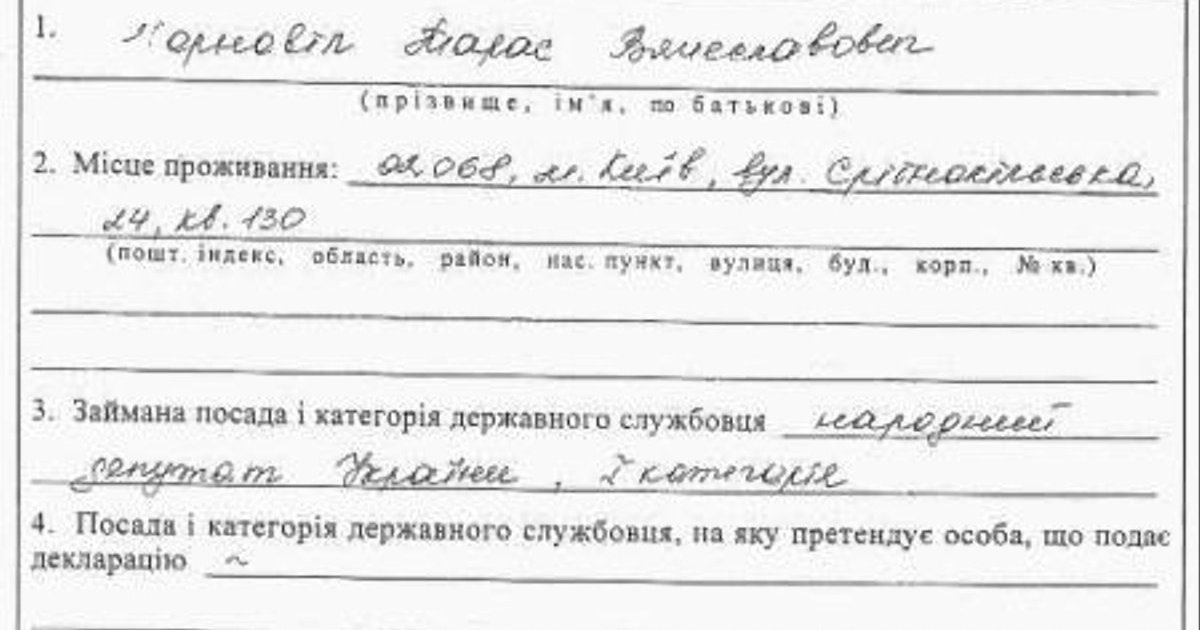 1. Чорновіл Тарас Вячеславович
(прізвище, ім'я, по батькові)
2. Місце проживання: 02068, м. Київ, вул. Срібнокільська,
24, кв. 130
(пошт. індекс, область, район, нас. пункт, вулиця, буд., корп., № кв.)
3. Займана посада і категорія державного службовця народний
депутат України, I категорія
4. Посада і категорія державного службовця, на яку претендує особа, що подає
декларацію ~